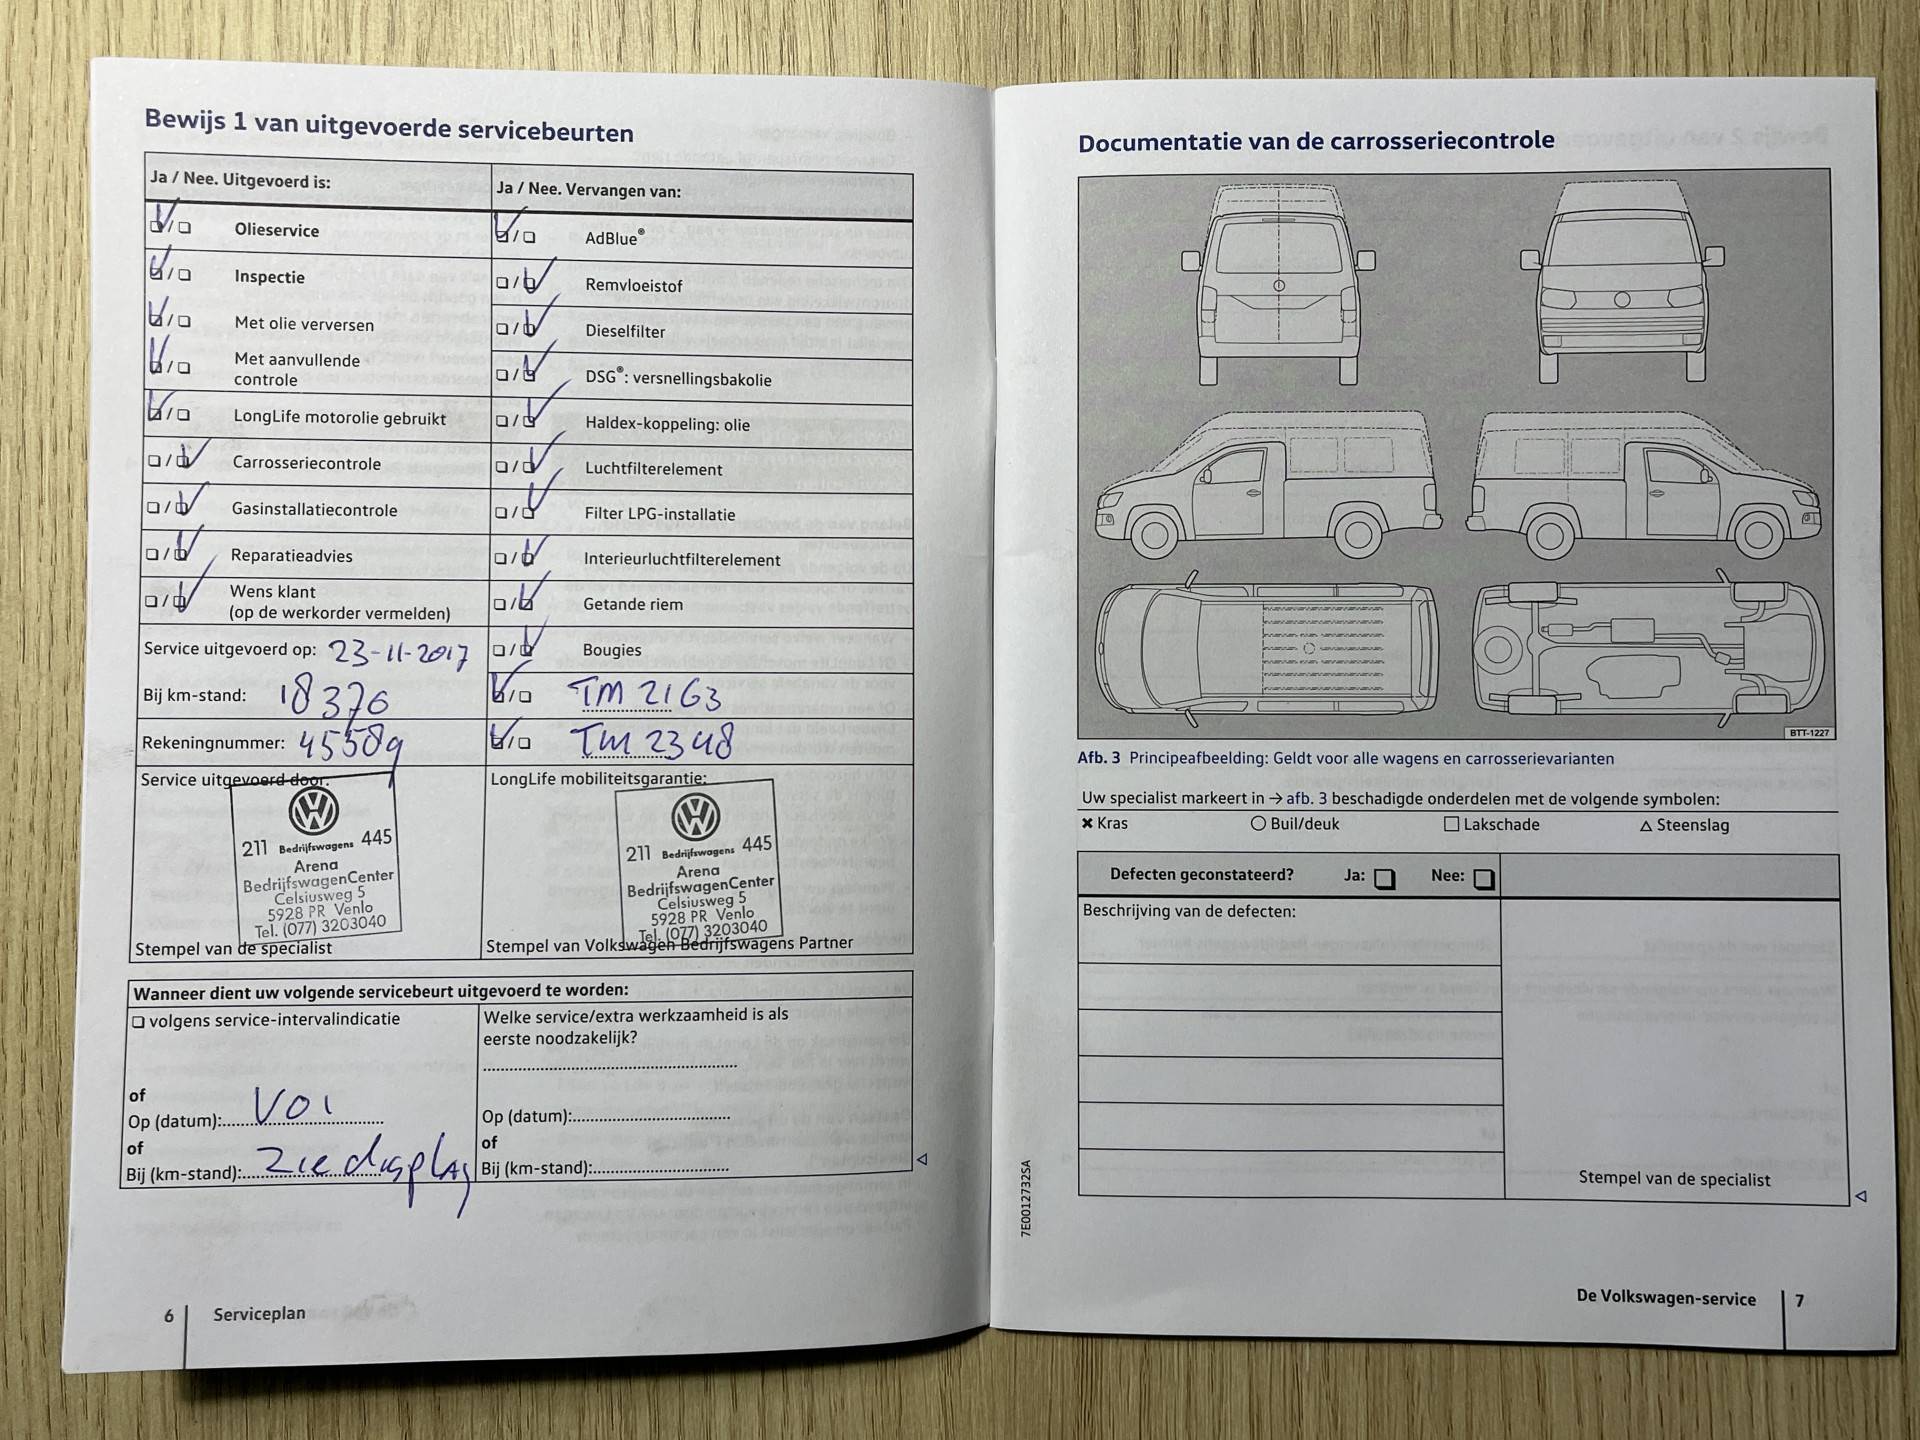 Bewijs 1 van uitgevoerde servicebeurten
Ja / Nee. Uitgevoerd is:
Ja / Nee. Vervangen van:
Olieservice
AdBlue®
Inspectie
Remvloeistof
Met olie verversen
Dieselfilter
Met aanvullende
controle
DSG®: versnellingsbakolie
LongLife motorolie gebruikt
Haldex-koppeling: olie
Carrosseriecontrole
Luchtfilterelement
Gasinstallatiecontrole
Filter LPG-installatie
Reparatieadvies
Interieurluchtfilterelement
Wens klant
(op de werkorder vermelden)
Getande riem
Service uitgevoerd op: 23-11-2017
Bougies
Bij km-stand: 18376
TM 2163
Rekeningnummer: 455089
TM 2348
Service uitgevoerd door:
211 Bedrijfswagens 445
Arena
BedrijfswagenCenter
Celsiusweg 5
5928 PR Venlo
Tel. (077) 3203040
Stempel van de specialist
LongLife mobiliteitsgarantie:
211 Bedrijfswagens 445
Arena
BedrijfswagenCenter
Celsiusweg 5
5928 PR Venlo
Tel. (077) 3203040
Stempel van Volkswagen Bedrijfswagens Partner
Wanneer dient uw volgende servicebeurt uitgevoerd te worden:
volgens service-intervalindicatie
of
Op (datum): VOI
of
Bij (km-stand): zie display
Welke service/extra werkzaamheid is als
eerste noodzakelijk?
Op (datum):
of
Bij (km-stand):
6 Serviceplan
Documentatie van de carrosseriecontrole
BTT-1227
Afb. 3 Principeafbeelding: Geldt voor alle wagens en carrosserievarianten
Uw specialist markeert in → afb. 3 beschadigde onderdelen met de volgende symbolen:
✖ Kras ○ Buil/deuk □ Lakschade △ Steenslag
Defecten geconstateerd? Ja: Nee:
Beschrijving van de defecten:
Stempel van de specialist
7E0012732SA
De Volkswagen-service 7